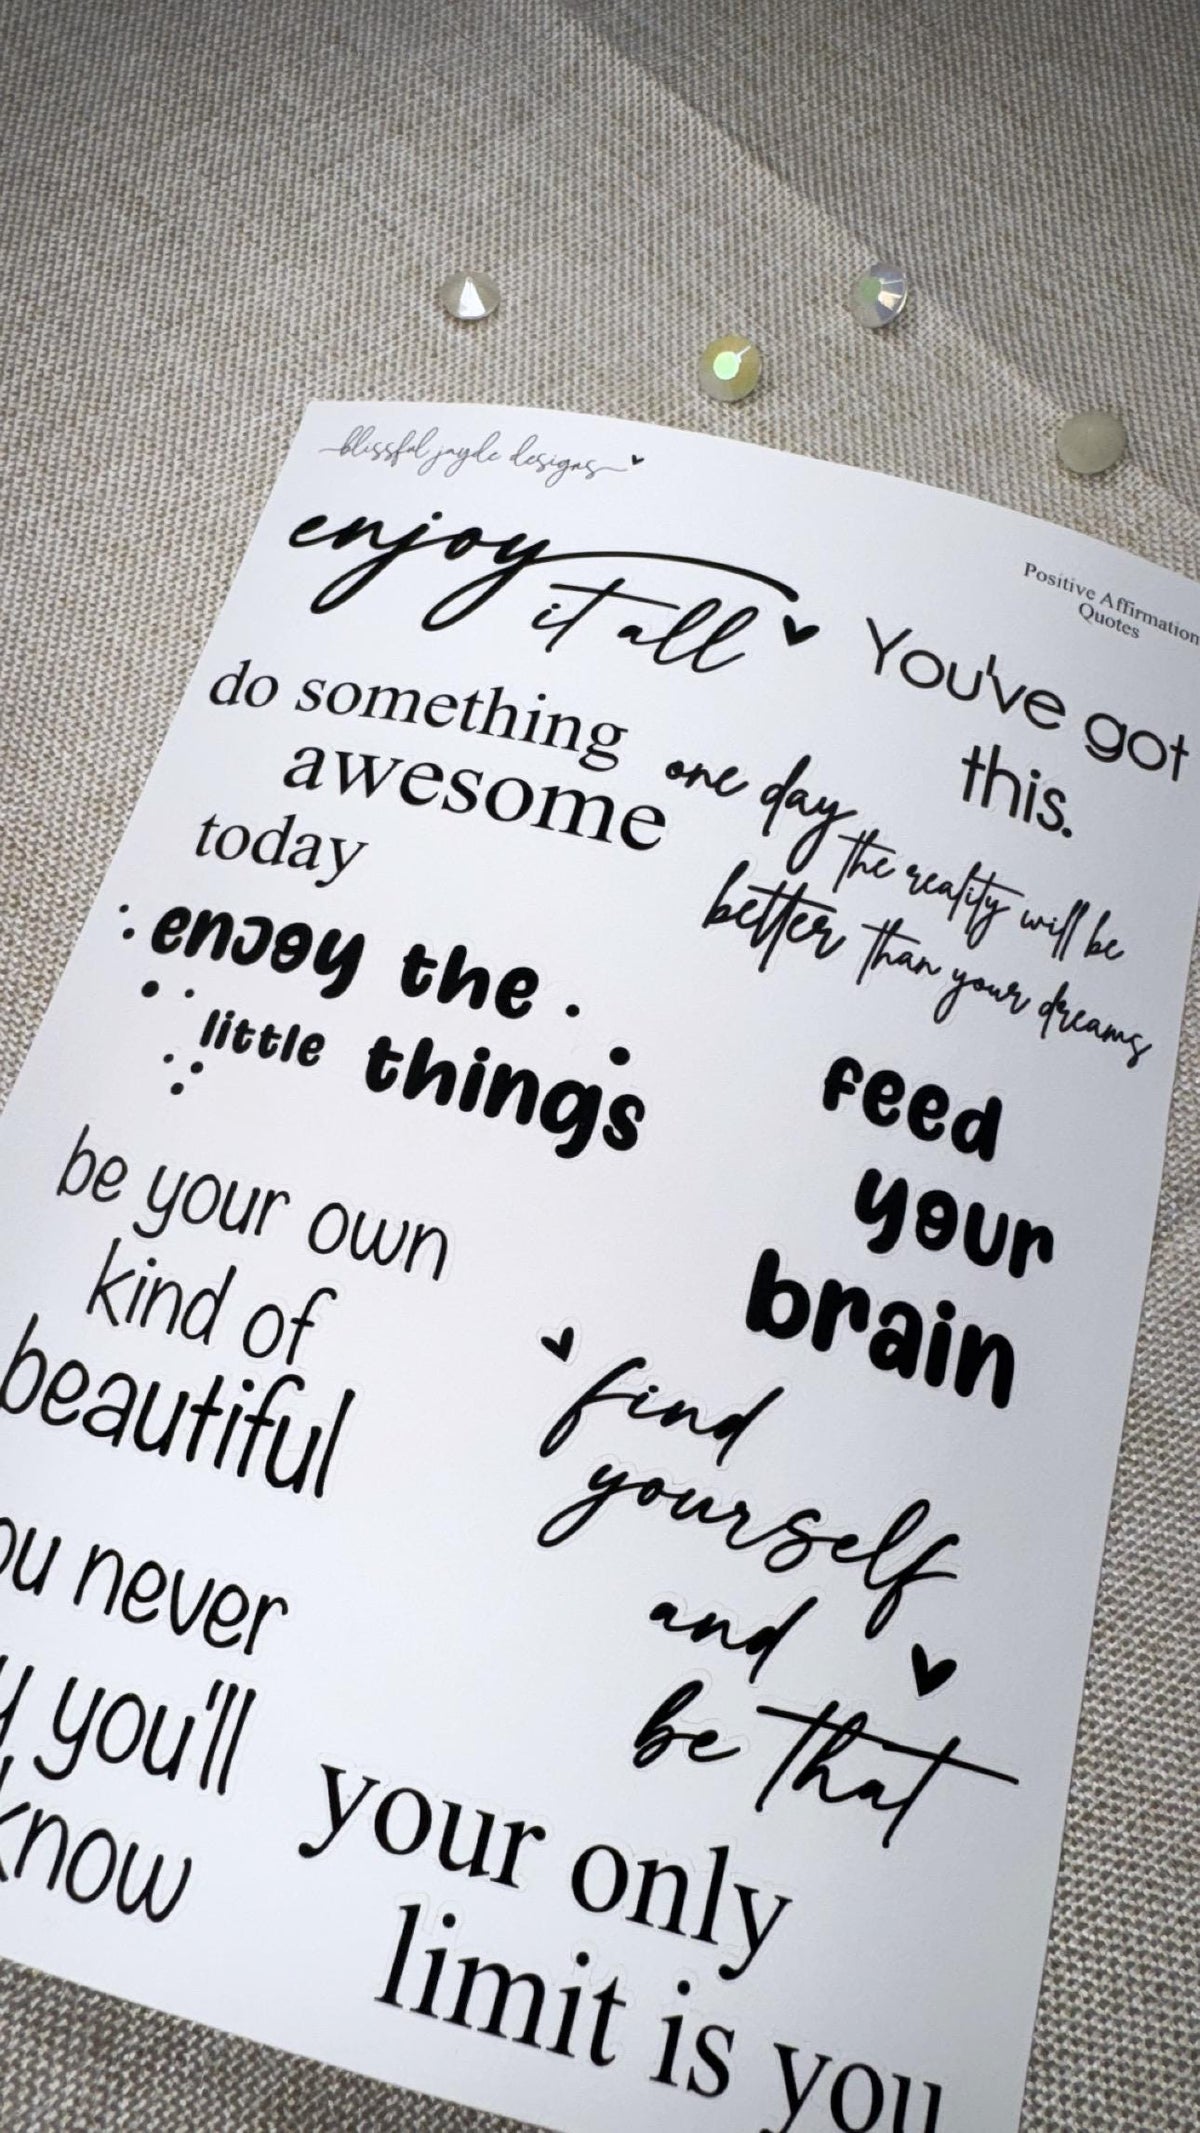 blissful jayde designs
Positive Affirmation
Quotes
enjoy
it all
You've got
this.
do something
awesome
today
one day
the reality will be
better than your dreams
enjoy the
little things
feed
your
brain
be your own
kind of
beautiful
find
yourself
and
be that
ou never
y you'll
know
your only
limit is you